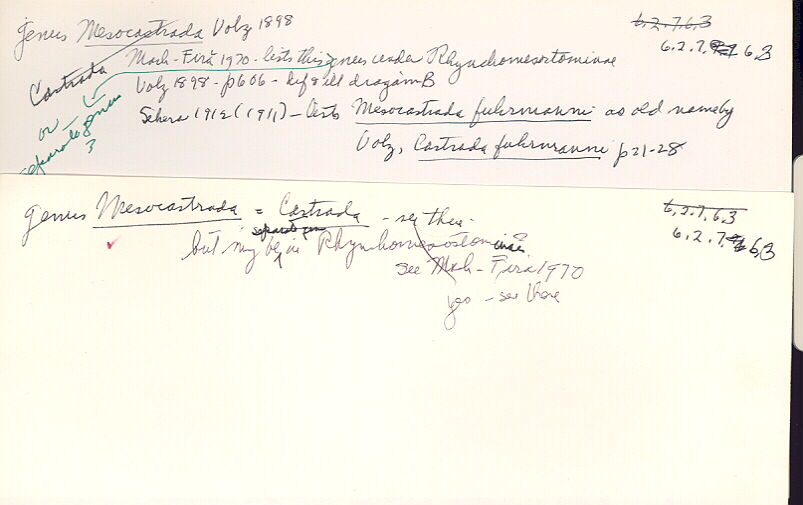 genus Mesocastrada Volz 1898
6.2.7.6.3
6.2.7. 6.3
Castrada
Mack-Firă 1970 - lists this genus under Rhynchomesostominae
Volz 1898 - p606 - def & ill diagram B
or
separate genus
?
Sekera 1912 (1911) - lists Mesocastrada fuhrmanni as old name by
Volz, Castrada fuhrmanni p21-28
genus Mesocastrada = Castrada - see there
6.2.7.6.3
6.2.7. 6.3
separate gen
but may be in Rhynchomesostominae
see Mack-Firă 1970
yes - see there